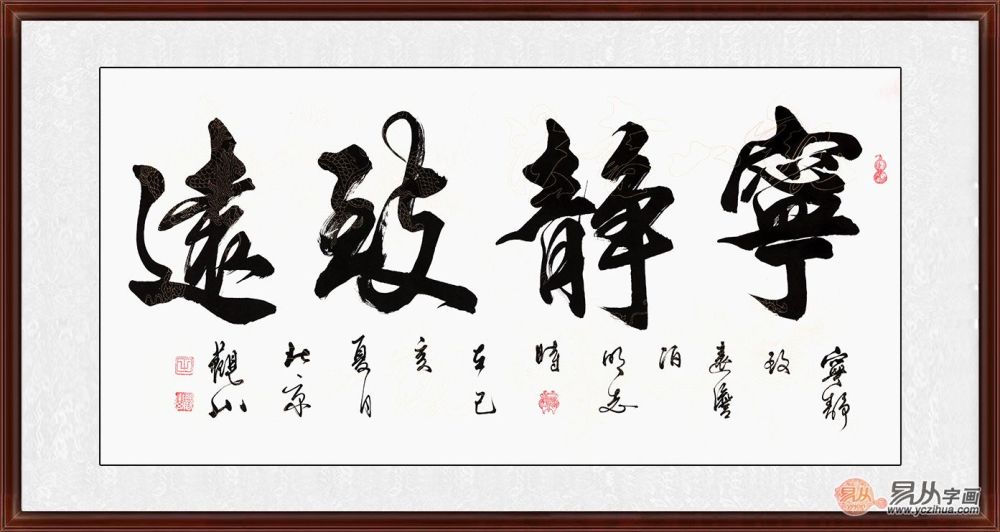 寧靜致遠
寧靜
致
遠澹
泊
明志
時
在己
亥
夏月
北京
觀山
易从字画
www.yczihua.com